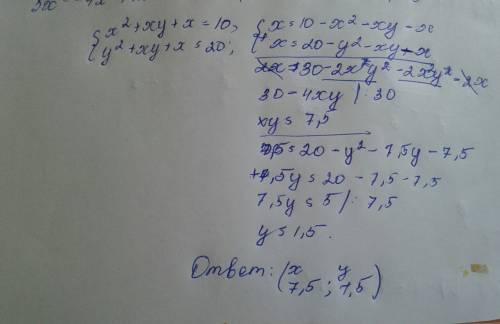 {x²+xy+x=10, {x=10-x²-xy-x
{y²+xy+x=20; {x=20-y²-xy-x
2x=30-2x²y²-2xy²-2x
30-4xy |:30
xy=7,5
7,5=20-y²-7,5y-7,5
+7,5y=20-7,5-7,5
7,5y=5 |:7,5
y=1,5.
Ответ: (x y
7,5; 1,5)